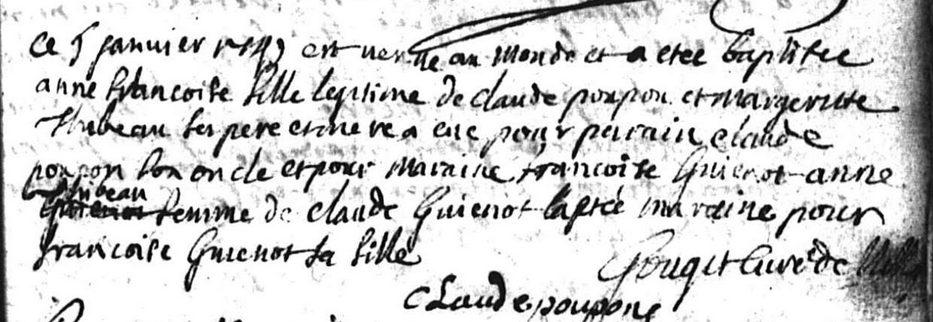 ce 5 janvier est venue au monde et a etee baptisee
anne francoise fille legitime de claude poupon et margeritte
Thibeau ses pere et mere a eue pour parain claude
poupon son oncle et pour maraine francoise Guienot anne
thibeau femme de claude Guienot maraine pour
francoise Guienot sa fille
Gougit curé de
claude poupons